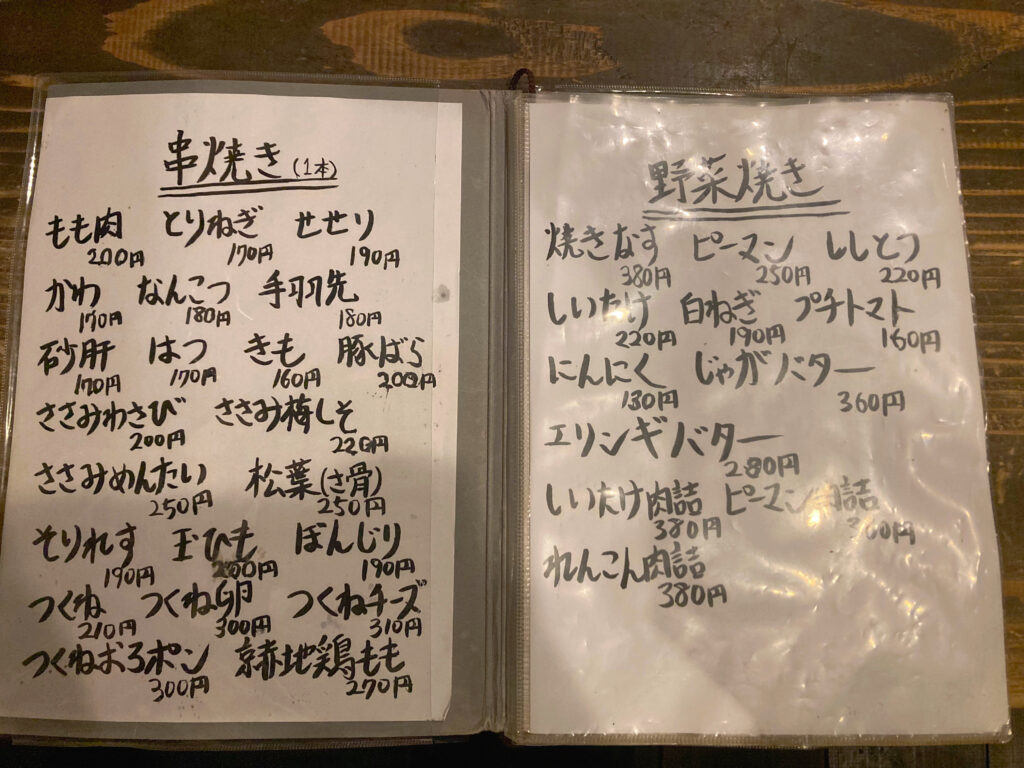 串焼き(1本)
もも肉 とりねぎ せせり
200円 170円 190円
かわ なんこつ 手羽先
170円 180円 180円
砂肝 はつ きも 豚ばら
170円 170円 160円 200円
ささみわさび ささみ梅しそ
200円 220円
ささみめんたい 松葉(さ骨)
250円 250円
そりれす 玉ひも ぼんじり
190円 200円 190円
つくね つくね卵 つくねチーズ
210円 300円 310円
つくねおろポン 京赤地鶏もも
300円 270円
野菜焼き
焼きなす ピーマン ししとう
380円 250円 220円
しいたけ 白ねぎ プチトマト
220円 190円 160円
にんにく じゃがバター
130円 360円
エリンギバター
280円
しいたけ肉詰 ピーマン肉詰
380円
れんこん肉詰
380円